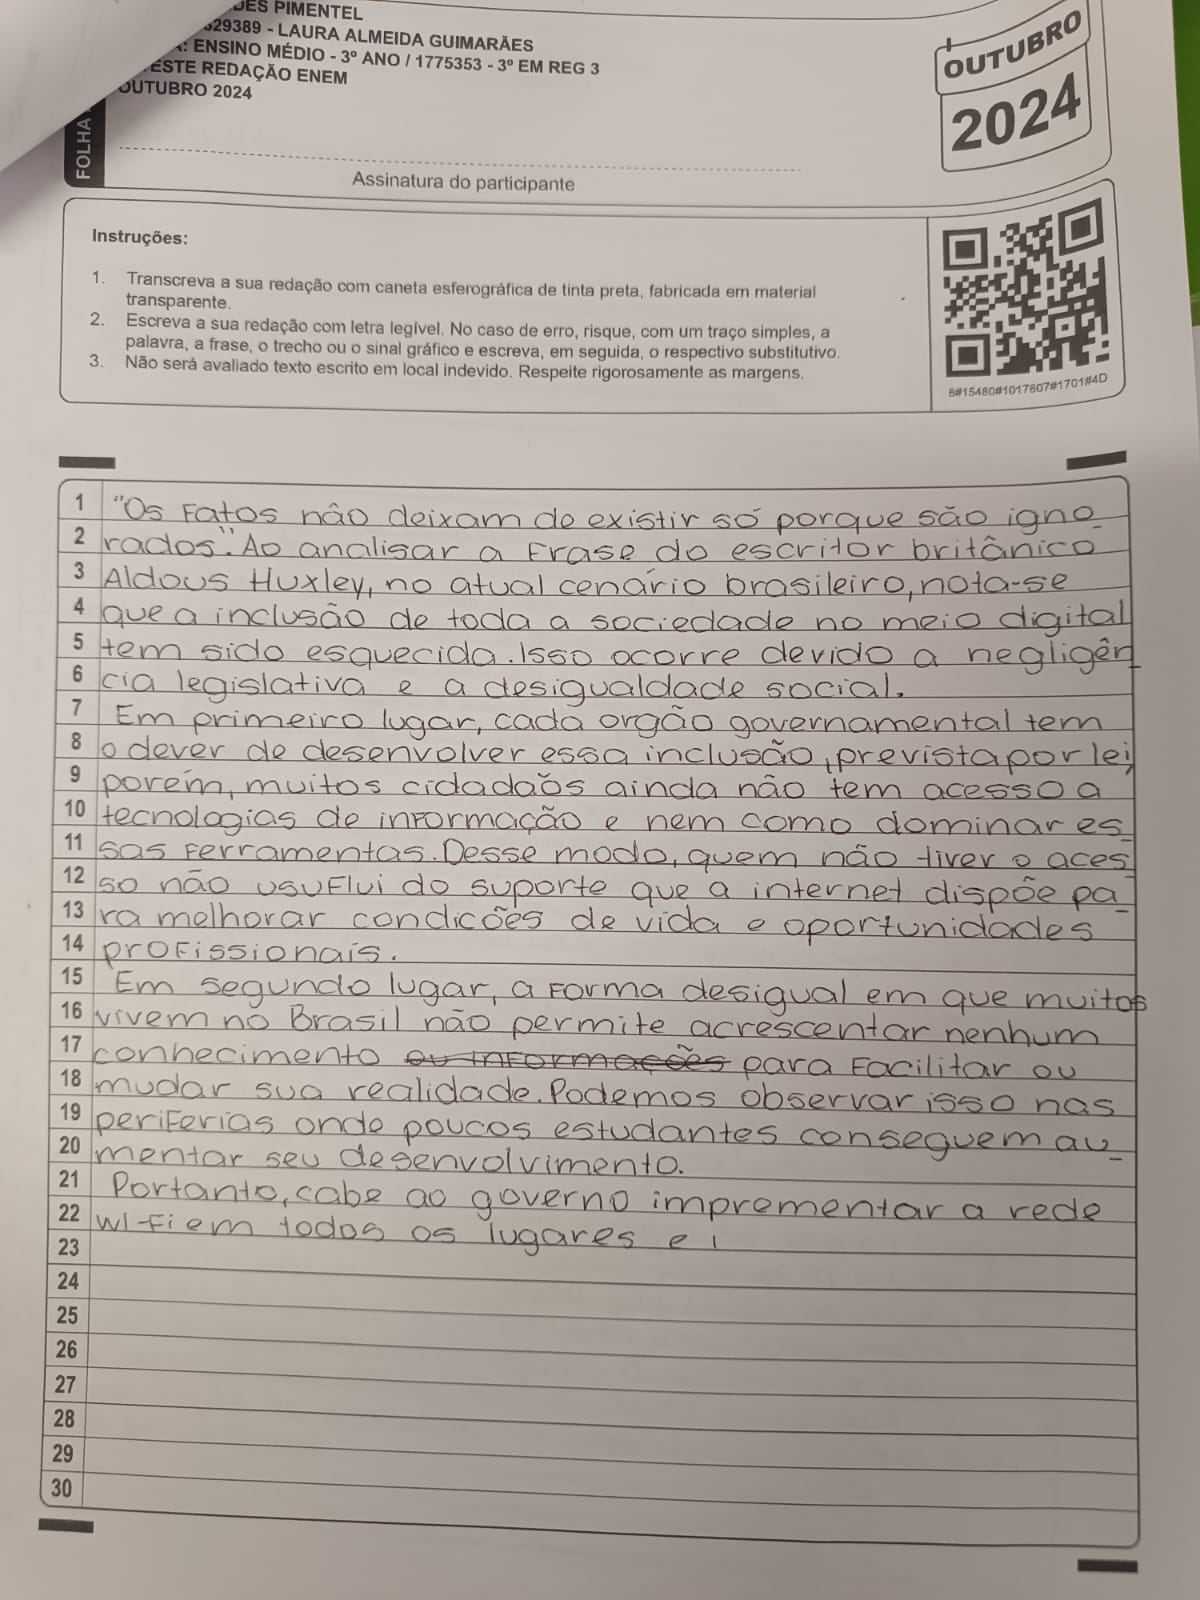 DES PIMENTEL
629389 - LAURA ALMEIDA GUIMARÃES
: ENSINO MÉDIO - 3º ANO / 1775353 - 3º EM REG 3
ESTE REDAÇÃO ENEM
OUTUBRO 2024
FOLHA
Assinatura do participante
OUTUBRO
2024
Instruções:
1. Transcreva a sua redação com caneta esferográfica de tinta preta, fabricada em material
transparente.
2. Escreva a sua redação com letra legível. No caso de erro, risque, com um traço simples, a
palavra, a frase, o trecho ou o sinal gráfico e escreva, em seguida, o respectivo substitutivo.
3. Não será avaliado texto escrito em local indevido. Respeite rigorosamente as margens.
6#15480#1017607#1701#4D
1 "Os Fatos não deixam de existir só porque são igno_
2 rados". Ao analisar a Frase do escritor britânico
3 Aldous Huxley, no atual cenário brasileiro, nota-se
4 que a inclusão de toda a sociedade no meio digital
5 tem sido esquecida. Isso ocorre devido a negligên_
6 cia legislativa e a desigualdade social.
7 Em primeiro lugar, cada orgão governamental tem
8 o dever de desenvolver essa inclusão, prevista por lei,
9 porém, muitos cidadaõs ainda não tem acesso a
10 tecnologias de informação e nem como dominar es_
11 sas Ferramentas. Desse modo, quem não tiver o aces_
12 so não usuFlui do suporte que a internet dispõe pa_
13 ra melhorar condicões de vida e oportunidades
14 profissionais.
15 Em segundo lugar, a Forma desigual em que muitos
16 vivem no Brasil não permite acrescentar nenhum
17 conhecimento ou informações para Facilitar ou
18 mudar sua realidade. Podemos observar isso nas
19 periferias onde poucos estudantes conseguem au_
20 mentar seu desenvolvimento.
21 Portanto, cabe ao governo imprementar a rede
22 wi-Fi em todos os lugares e i
23
24
25
26
27
28
29
30